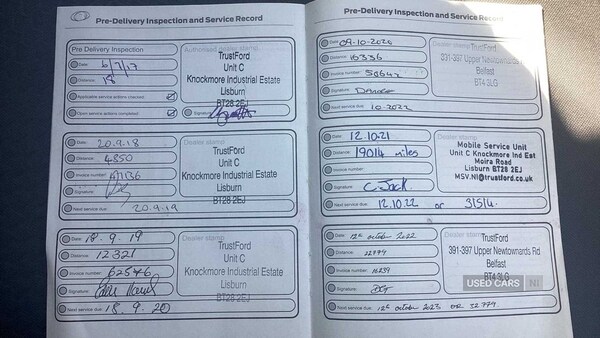 Pre-Delivery Inspection and Service Record
Pre Delivery Inspection
Authorised dealer stamp
Date: 6/7/17
Distance: 18
Applicable service actions checked
Open service actions completed
Signature:
TrustFord
Unit C
Knockmore Industrial Estate
Lisburn
BT28 2EJ
Date: 20.9.18
Distance: 4850
Invoice number:
Signature:
Next service due: 20.9.19
Dealer stamp
TrustFord
Unit C
Knockmore Industrial Estate
Lisburn
BT28 2EJ
Date: 18.9.19
Distance: 12321
Invoice number: 62546
Signature:
Next service due: 18.9.20
Dealer stamp
TrustFord
Unit C
Knockmore Industrial Estate
Lisburn
BT28 2EJ
Pre-Delivery Inspection and Service Record
Date: 09-10-2020
Distance: 16336
Invoice number:
Signature:
Next service due:
Dealer stamp
TrustFord
391-397 Upper Newtownards Rd
Belfast
BT4 3LG
Date: 12.10.21
Distance: 19014 miles
Invoice number:
Signature: C. Jack
Next service due: 12.10.22 or 31514.
Mobile Service Unit
Unit C Knockmore Ind Est
Moira Road
Lisburn BT28 2EJ
MSV.NI@trustford.co.uk
Date: 12th october 2022
Distance: 22779
Invoice number: 16239
Signature:
Next service due: 12th october 2023 OR 32779
Dealer stamp
TrustFord
391-397 Upper Newtownards Rd
Belfast
BT4 3LG
USED CARS NI